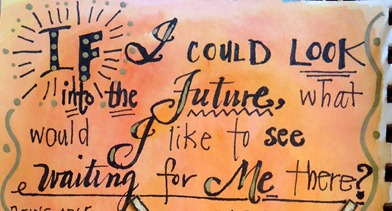 IF I COULD LOOK
into the Future, what
would I like to see
waiting for Me there?
BEING ABLE